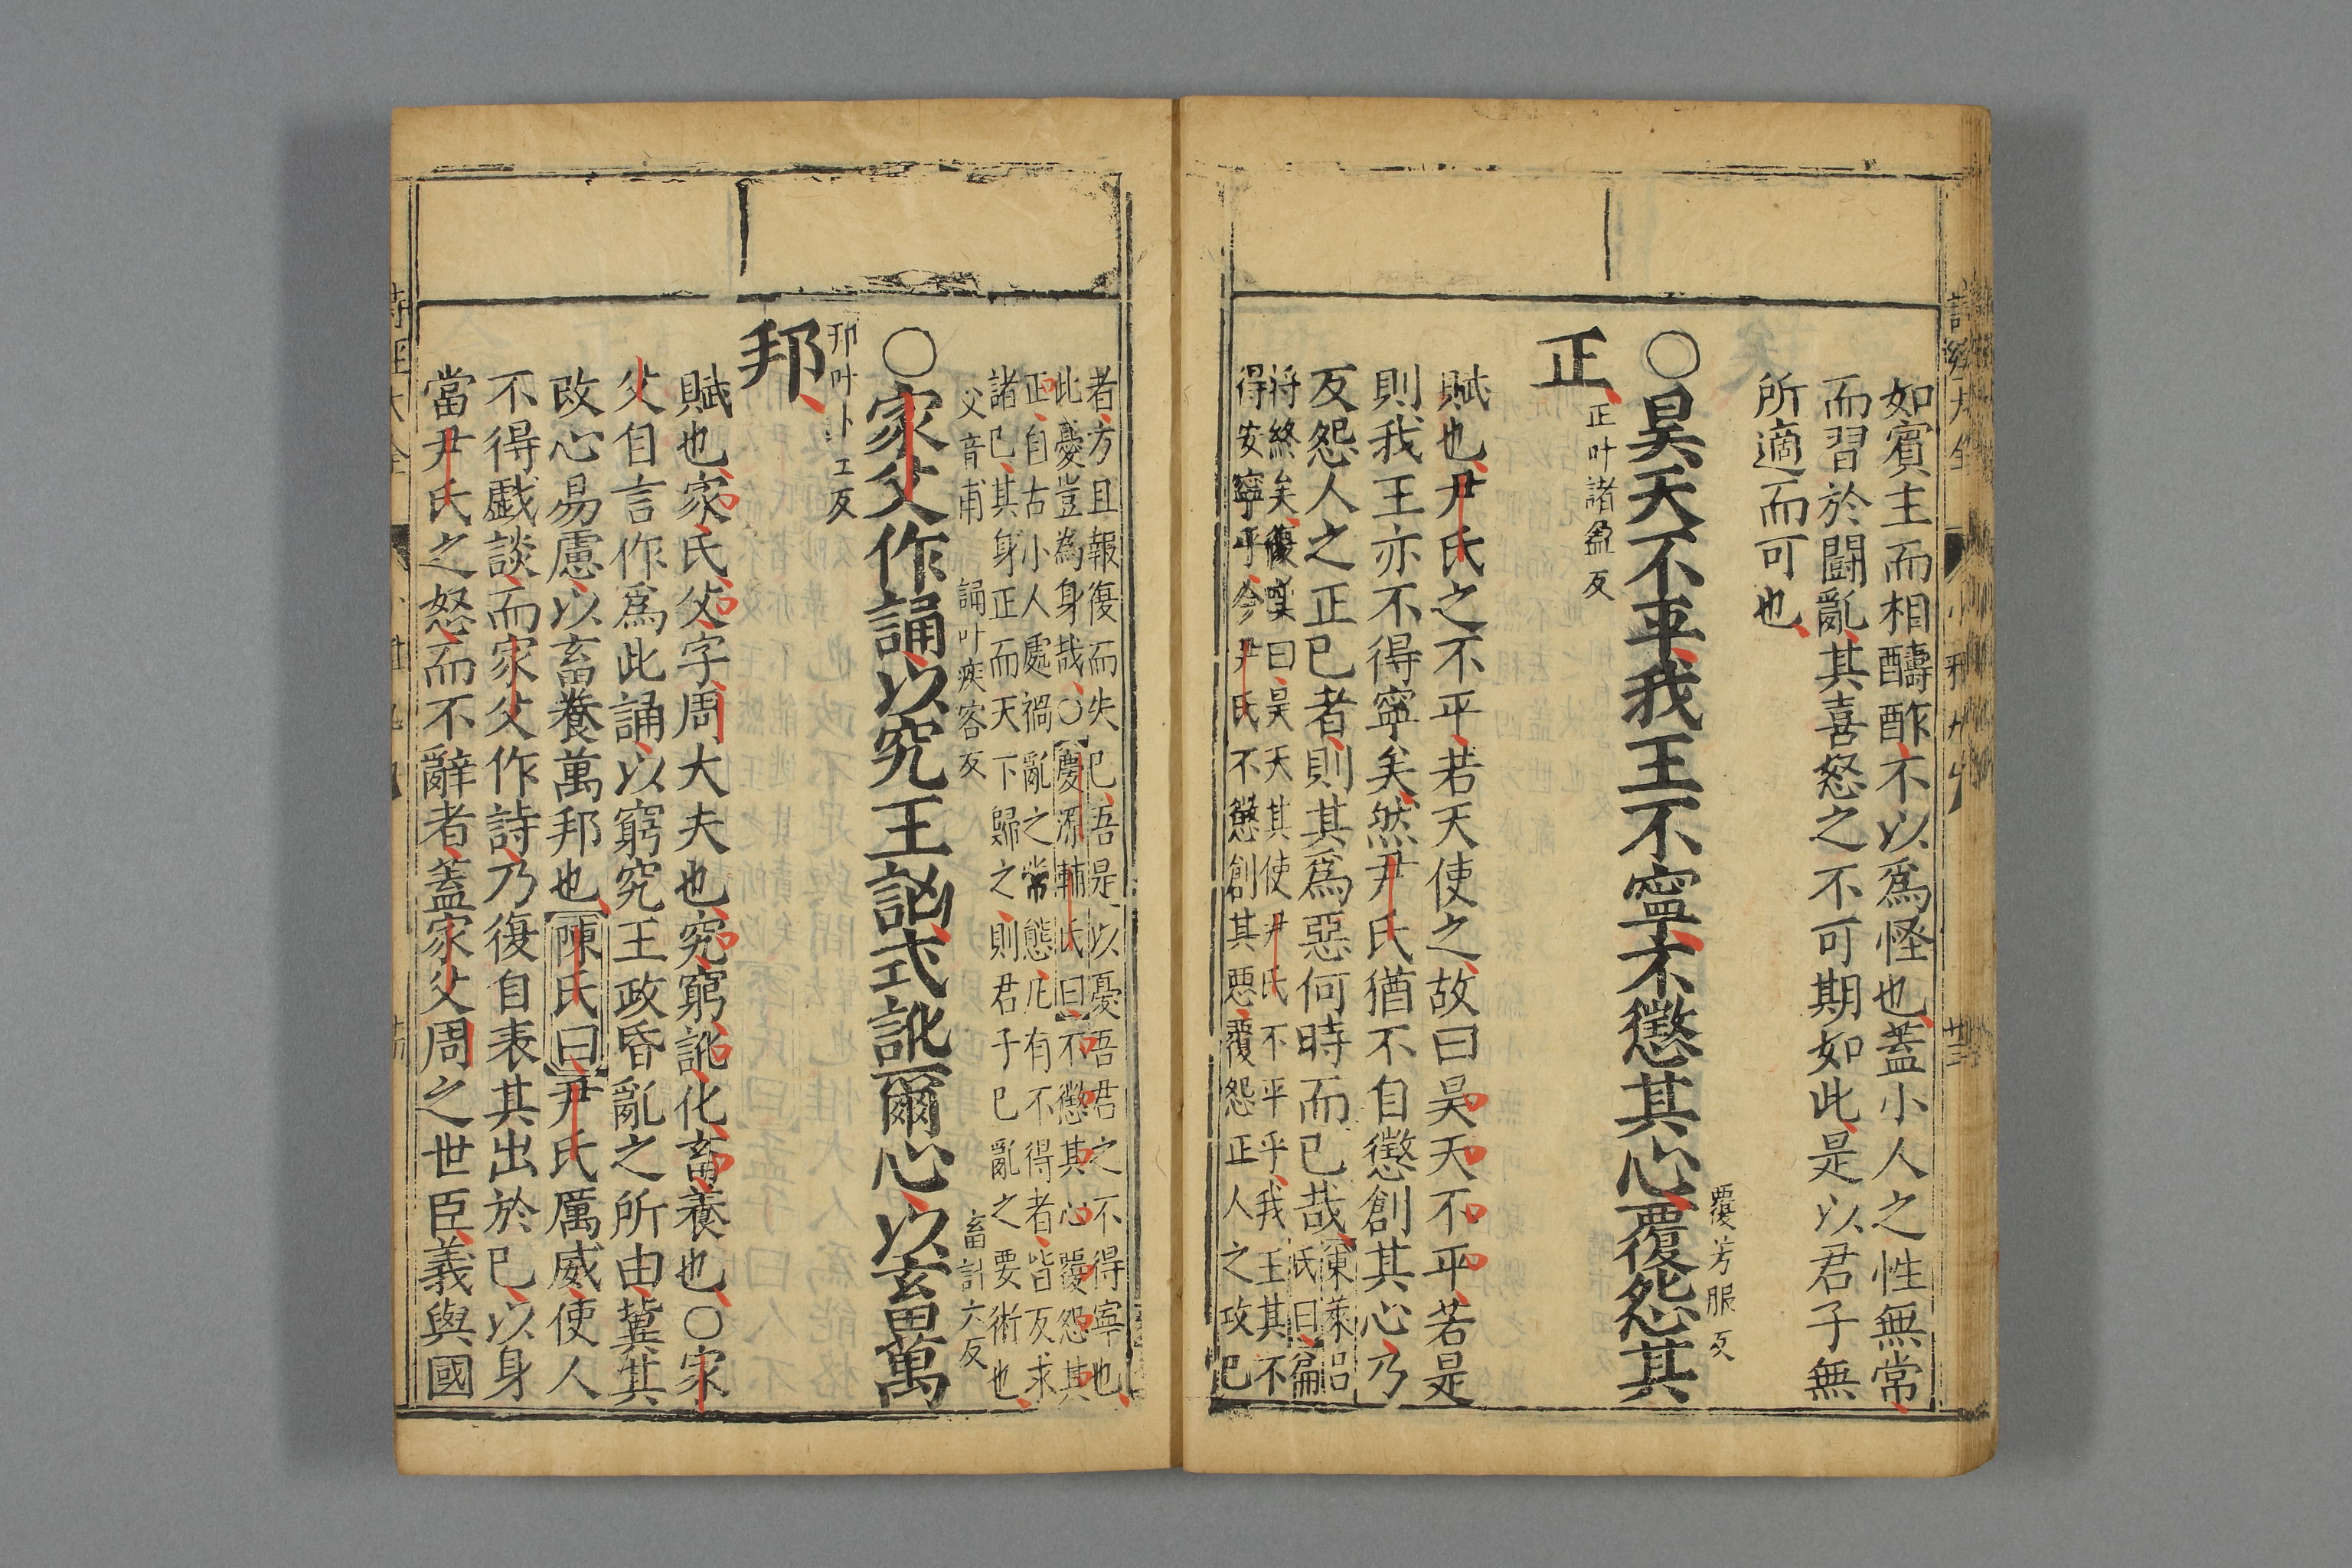 如賓主而相醻酢不以爲怪也蓋小人之性無常
而習於鬭亂其喜怒之不可期如此是以君子無
所適而可也
○昊天不平我王不寧不懲其心覆怨其
覆芳服反
正
正叶諸盈反
賦也尹氏之不平若天使之故曰昊天不平若是
則我王亦不得寧矣然尹氏猶不自懲創其心乃
反怨人之正已者則其爲惡何時而已哉
東萊呂
氏曰篇
將終矣復嘆曰昊天其使尹氏不平乎我王其不
得安寧乎今尹氏不懲創其惡覆怨正人之攻已
者方且報復而失已吾是以憂吾君之不得寧也
此憂豈為身哉○慶源輔氏曰不懲其心覆怨其
正自古小人處禍亂之常態凡有不得者皆反求
諸已其身正而天下歸之則君子已亂之要術也
○家父作誦以究王訩式訛爾心以畜萬
父音甫 誦叶疾容反 畜許六反
邦
邦叶卜工反
賦也家氏父字周大夫也究窮訛化畜養也○家
父自言作爲此誦以窮究王政昏亂之所由冀其
改心易慮以畜養萬邦也陳氏曰尹氏厲威使人
不得戲談而家父作詩乃復自表其出於已以身
當尹氏之怒而不辭者蓋家父周之世臣義與國